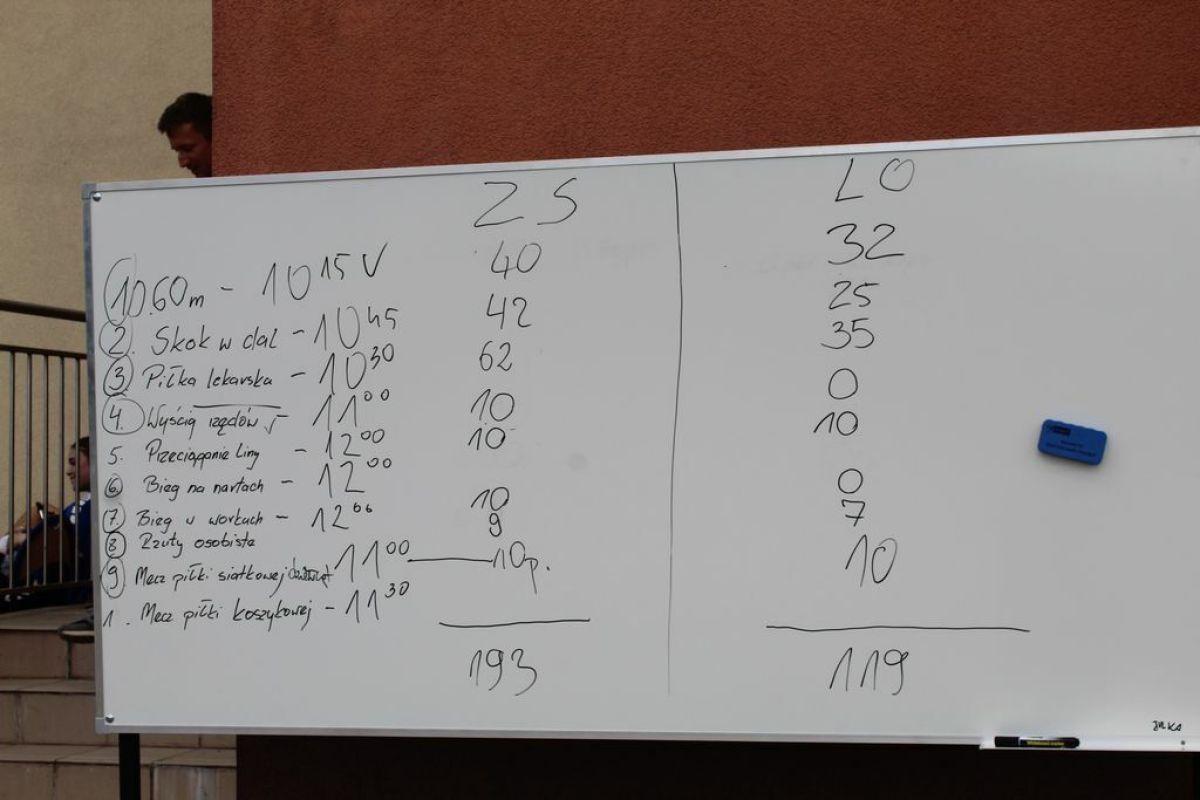 ZS LO
10.60m - 10¹⁵ V 40 32
2. Skok w dal - 10⁴⁵ 42 25
3 Piłka lekarska - 10³⁰ 62 35
4. Wyścig rzędów 11⁰⁰ 10 0
5. Przeciąganie liny - 12⁰⁰ 10 10
6. Bieg na nartach - 12⁰⁰
7. Bieg w workach - 12⁰⁰ 10 0
8 Rzuty osobiste 9 7
9 Mecz piłki siatkowej 11⁰⁰ — 10p. 10
1. Mecz piłki koszykowej - 11³⁰
193 119